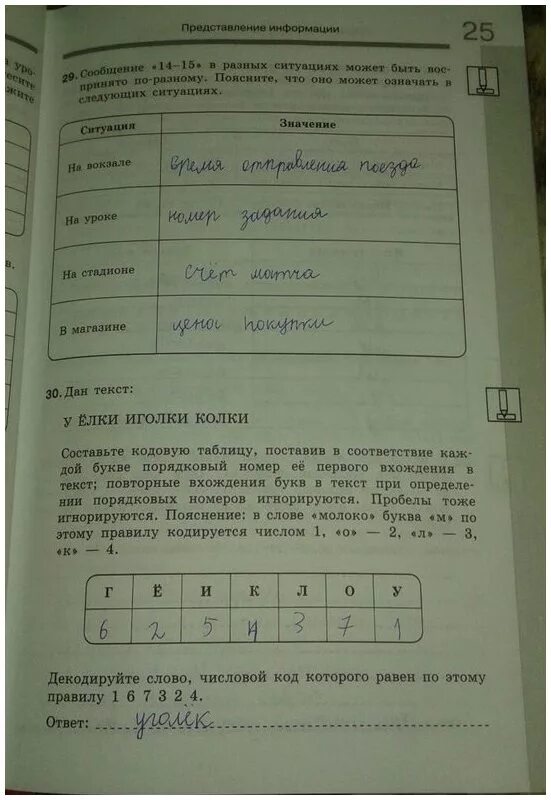 Представление информации
25
29. Сообщение «14–15» в разных ситуациях может быть вос-
принято по-разному. Поясните, что оно может означать в
следующих ситуациях.
Ситуация Значение
На вокзале время отправления поезда
На уроке номер задания
На стадионе счёт матча
В магазине цена покупки
30. Дан текст:
У ЁЛКИ ИГОЛКИ КОЛКИ
Составьте кодовую таблицу, поставив в соответствие каж-
дой букве порядковый номер её первого вхождения в
текст; повторные вхождения букв в текст при определе-
нии порядковых номеров игнорируются. Пробелы тоже
игнорируются. Пояснение: в слове «молоко» буква «м» по
этому правилу кодируется числом 1, «о» — 2, «л» — 3,
«к» — 4.
Г Ё И К Л О У
6 2 5 4 3 7 1
Декодируйте слово, числовой код которого равен по этому
правилу 1 6 7 3 2 4.
Ответ: уголёк